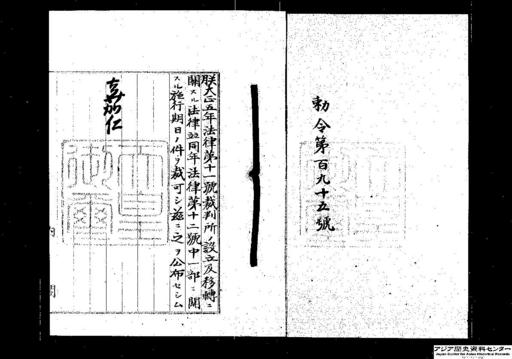 勅令第百九十五號
朕大正五年法律第十一號裁判所設立及移轉ニ
關スル法律竝同年法律第十二號中一部ニ關
スル施行期日ノ件ヲ裁可シ茲ニ之ヲ公布セシム
嘉仁
天皇
御璽
内閣
アジア歴史資料センター
Japan Center for Asian Historical Records